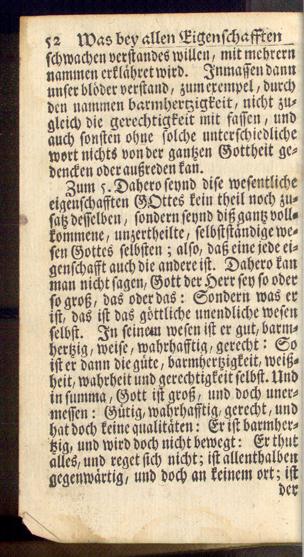 52 Was bey allen Eigenschafften
schwachen verstandes willen, mit mehrern
nammen erklähret wird. Inmassen dann
unser blöder verstand, zum exempel, durch
den nammen barmhertzigkeit, nicht zu-
gleich die gerechtigkeit mit fassen, und
auch sonsten ohne solche unterschiedliche
wort nichts von der gantzen Gottheit ge-
dencken oder außreden kan.
Zum 5. Dahero seynd dise wesentliche
eigenschafften GOttes kein theil noch zu-
satz desselben, sondern seynd diß gantz voll-
kommene, unzertheilte, selbstständige we-
sen Gottes selbsten; also, daß eine jede ei-
genschafft auch die andere ist. Dahero kan
man nicht sagen, Gott der Herr sey so oder
so groß, das oder das: Sondern was er
ist, das ist das göttliche unendliche wesen
selbst. In seinem wesen ist er gut, barm-
hertzig, weise, wahrhafftig, gerecht: So
ist er dann die güte, barmhertzigkeit, weiß-
heit, wahrheit und gerechtigkeit selbst. Und
in summa, Gott ist groß, und doch uner-
messen: Gütig, wahrhafftig, gerecht, und
hat doch keine qualitäten: Er ist barmher-
tzig, und wird doch nicht bewegt: Er thut
alles, und reget sich nicht; ist allenthalben
gegenwärtig, und doch an keinem ort; ist
der